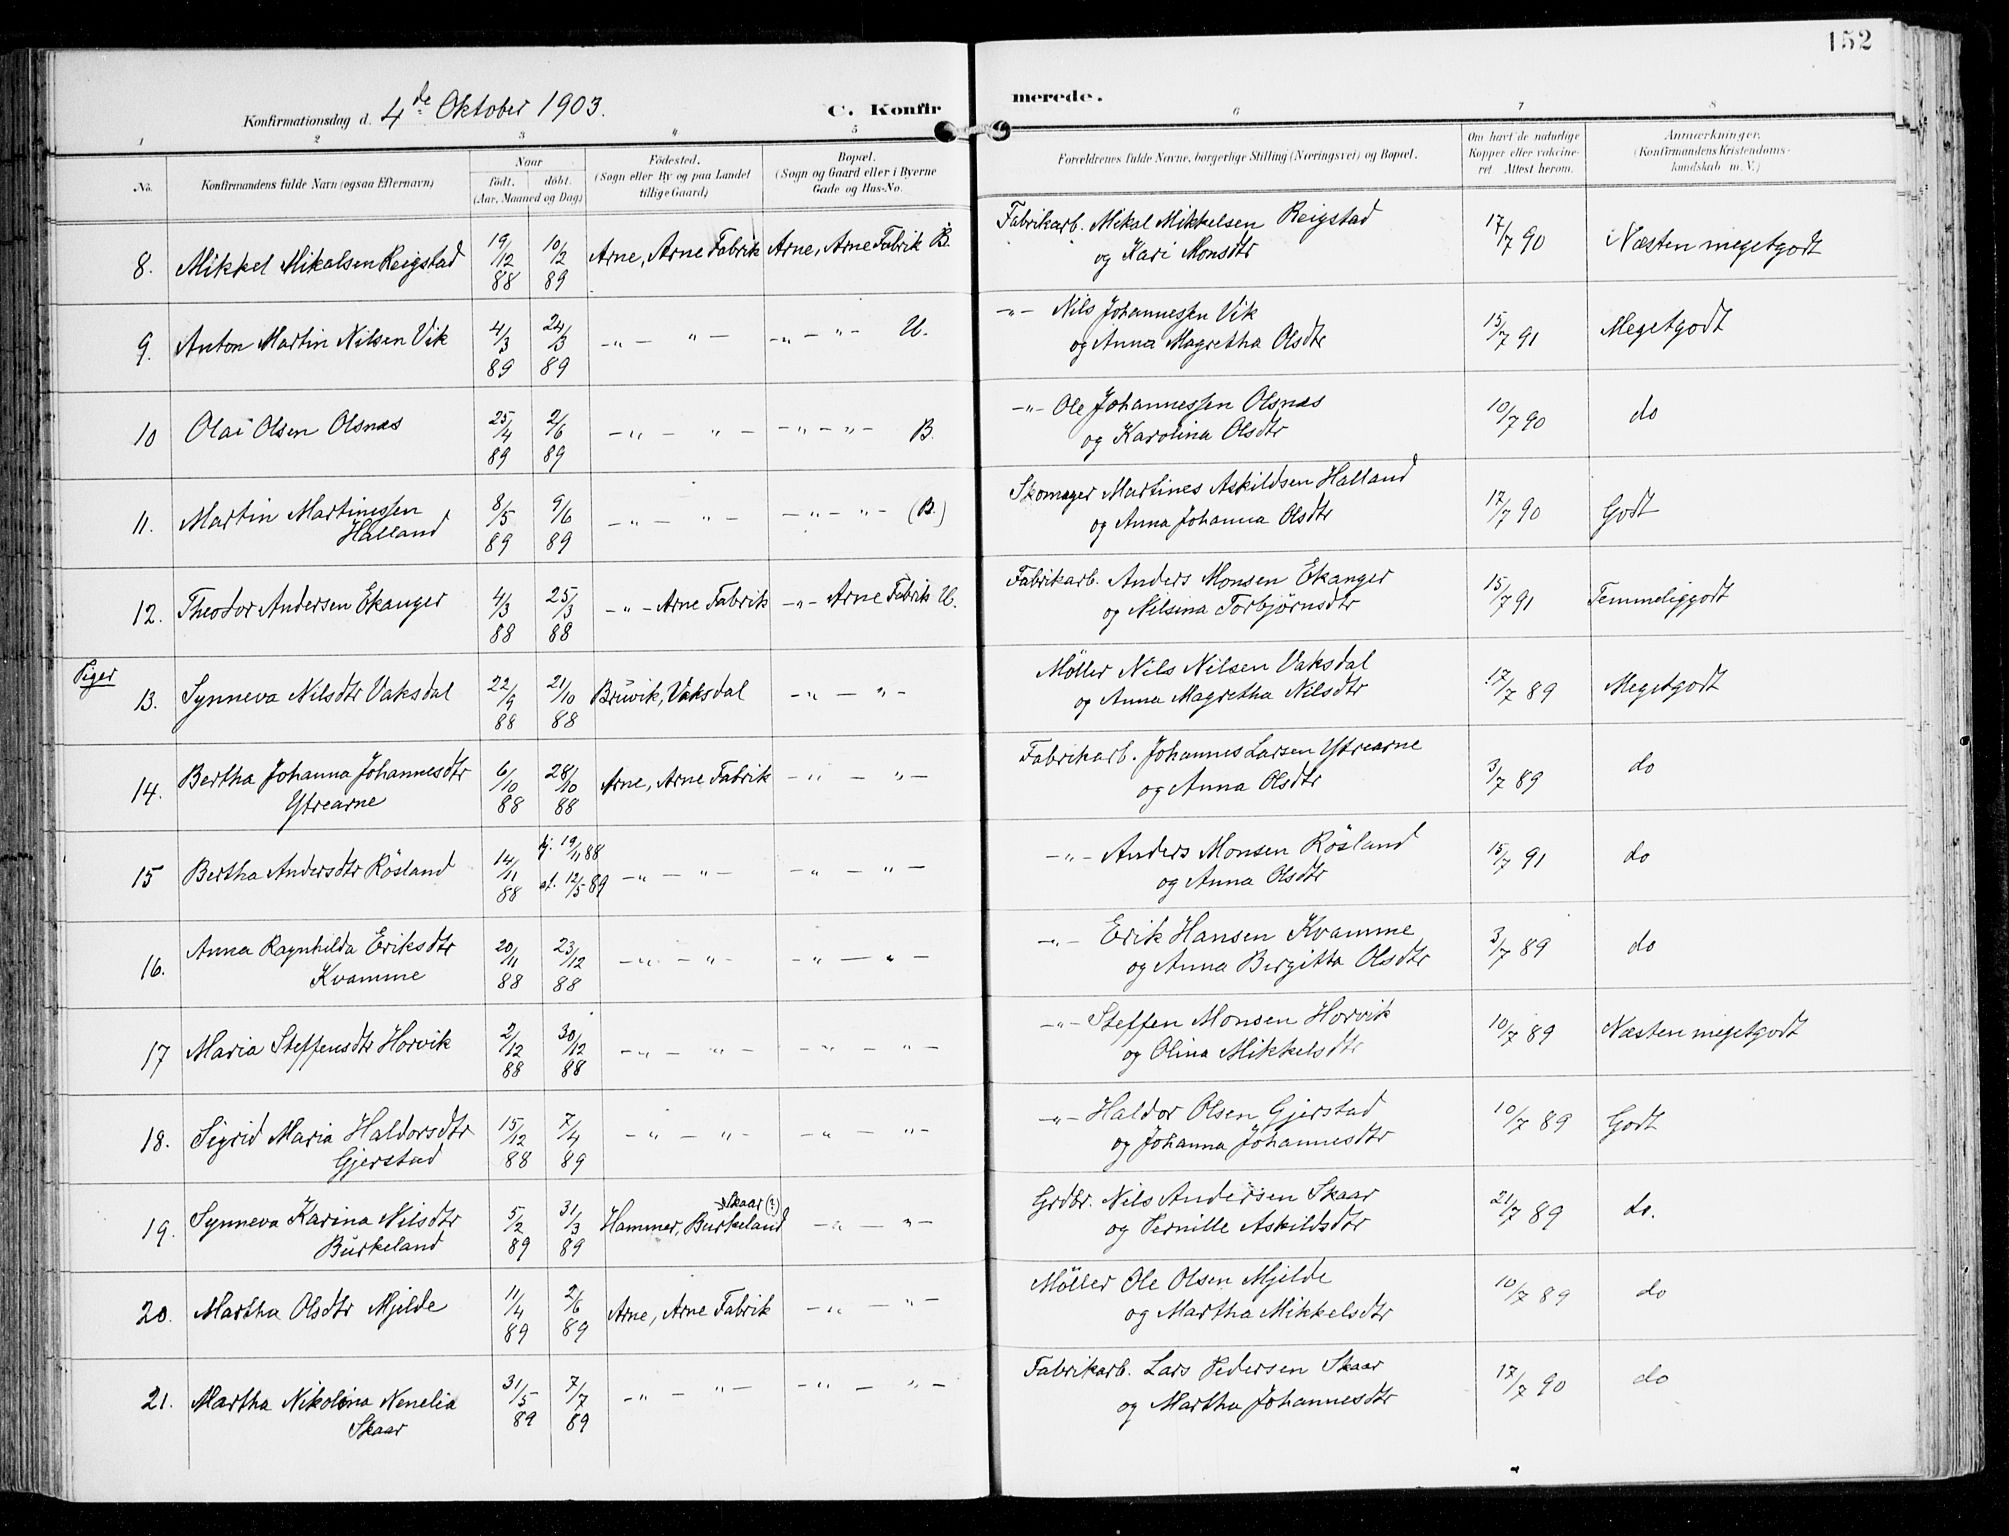 152
Konfirmationsdag d. 4de Oktober 1903. C. Konfir merede.
1 2 3 4 5 6 7 8
No. Konfirmandens fulde Navn (ogsaa Efternavn) Naar födt. döbt. (Aar, Maaned og Dag) Födested. (Sogn eller By og paa Landet tillige Gaard) Bopæl. (Sogn og Gaard eller i Byerne Gade og Hus-No. Forældrenes fulde Navne, borgerlige Stilling (Næringsvei) og Bopæl. Om havt de naturlige Kopper eller vakcineret. Attest herom. Anmærkninger. (Konfirmandens Kristendomskundskab m.V.)
8. Mikkel Mikalsen Reigstad 19/12 88 10/2 89 Arne, Arne Fabrik Arne, Arne Fabrik B. Fabrikarb. Mikal Mikkelsen Reigstad 17/7 90 Næsten megetgodt
og Kari Monsdtr
9. Anton Martin Nilsen Vik 4/3 89 24/3 89 -"- "- -"- "- U. -"- Nils Johannessen Vik 15/7 91 Megetgodt
og Anna Magretha Olsdtr
10 Olai Olsen Olsnæs 25/4 89 2/6 89 -"- "- -"-"- B. -"- Ole Johannessen Olsnæs 10/7 90 do
og Karolina Olsdtr
11. Martin Martinessen 8/5 89 9/6 89 -"- "- -"- "- (B.) Skomager Martines Askildsen Halland 17/7 90 Godt
Halland og Anna Johanna Olsdtr
12. Theodor Andersen Ekanger 4/3 88 25/3 88 -"- Arne Fabrik -"- Arne Fabrik U. Fabrikarb. Anders Monsen Ekanger 15/7 91 Temmeliggodt
og Nilsina Torbjörnsdtr
Piger
13. Synneva Nilsdtr Vaksdal 22/9 88 21/10 88 Bruvik, Vaksdal -"- "- Møller Nils Nilsen Vaksdal 17/7 89 Megetgodt
og Anna Magretha Nilsdtr
14. Bertha Johanna Johannesdtr 6/10 88 28/10 88 Arne, Arne Fabrik -"- "- Fabrikarb. Johannes Larsen Ytrearne 3/7 89 do
Ytrearne og Anna Olsdtr
15 Bertha Andersdtr Rösland 14/11 88 hj. 19/11 88 af. 12/5 89 -"- "- -"- "- -"- Anders Monsen Rösland 15/7 91 do
og Anna Olsdtr
16. Anna Ragnhilda Eriksdtr 20/11 88 23/12 88 -"- "- -"- "- -"- Erik Hansen Kvamme 3/7 89 do
Kvamme og Anna Bergitta Olsdtr
17 Maria Steffensdtr Horvik 2/12 88 30/12 88 -"- "- -"- "- -"- Steffen Monsen Horvik 10/7 89 Næsten megetgodt
og Olina Mikkelsdtr
18. Sigrid Maria Haldorsdtr 15/12 88 7/4 89 -"- "- -"- "- -"- Haldor Olsen Gjerstad 10/7 89 Godt
Gjerstad og Johanna Johannesdtr
19. Synneva Karina Nilsdtr 5/2 89 31/3 89 Hammer, Burkeland Skaar (?) -"- "- Grdbr. Nils Andersen Skaar 21/7 89 do.
Burkeland og Pernille Askildsdtr
20. Martha Olsdtr Mjelde 11/4 89 2/6 89 Arne, Arne Fabrik -"- "- Møller Ole Olsen Mjelde 10/7 89 do
og Martha Mikkelsdtr
21. Martha Nikolina Nenelia 31/5 89 7/7 89 -"- "- -"- "- Fabrikarb. Lars Pedersen Skaar 17/7 90 do
Skaar og Martha Johannesdtr